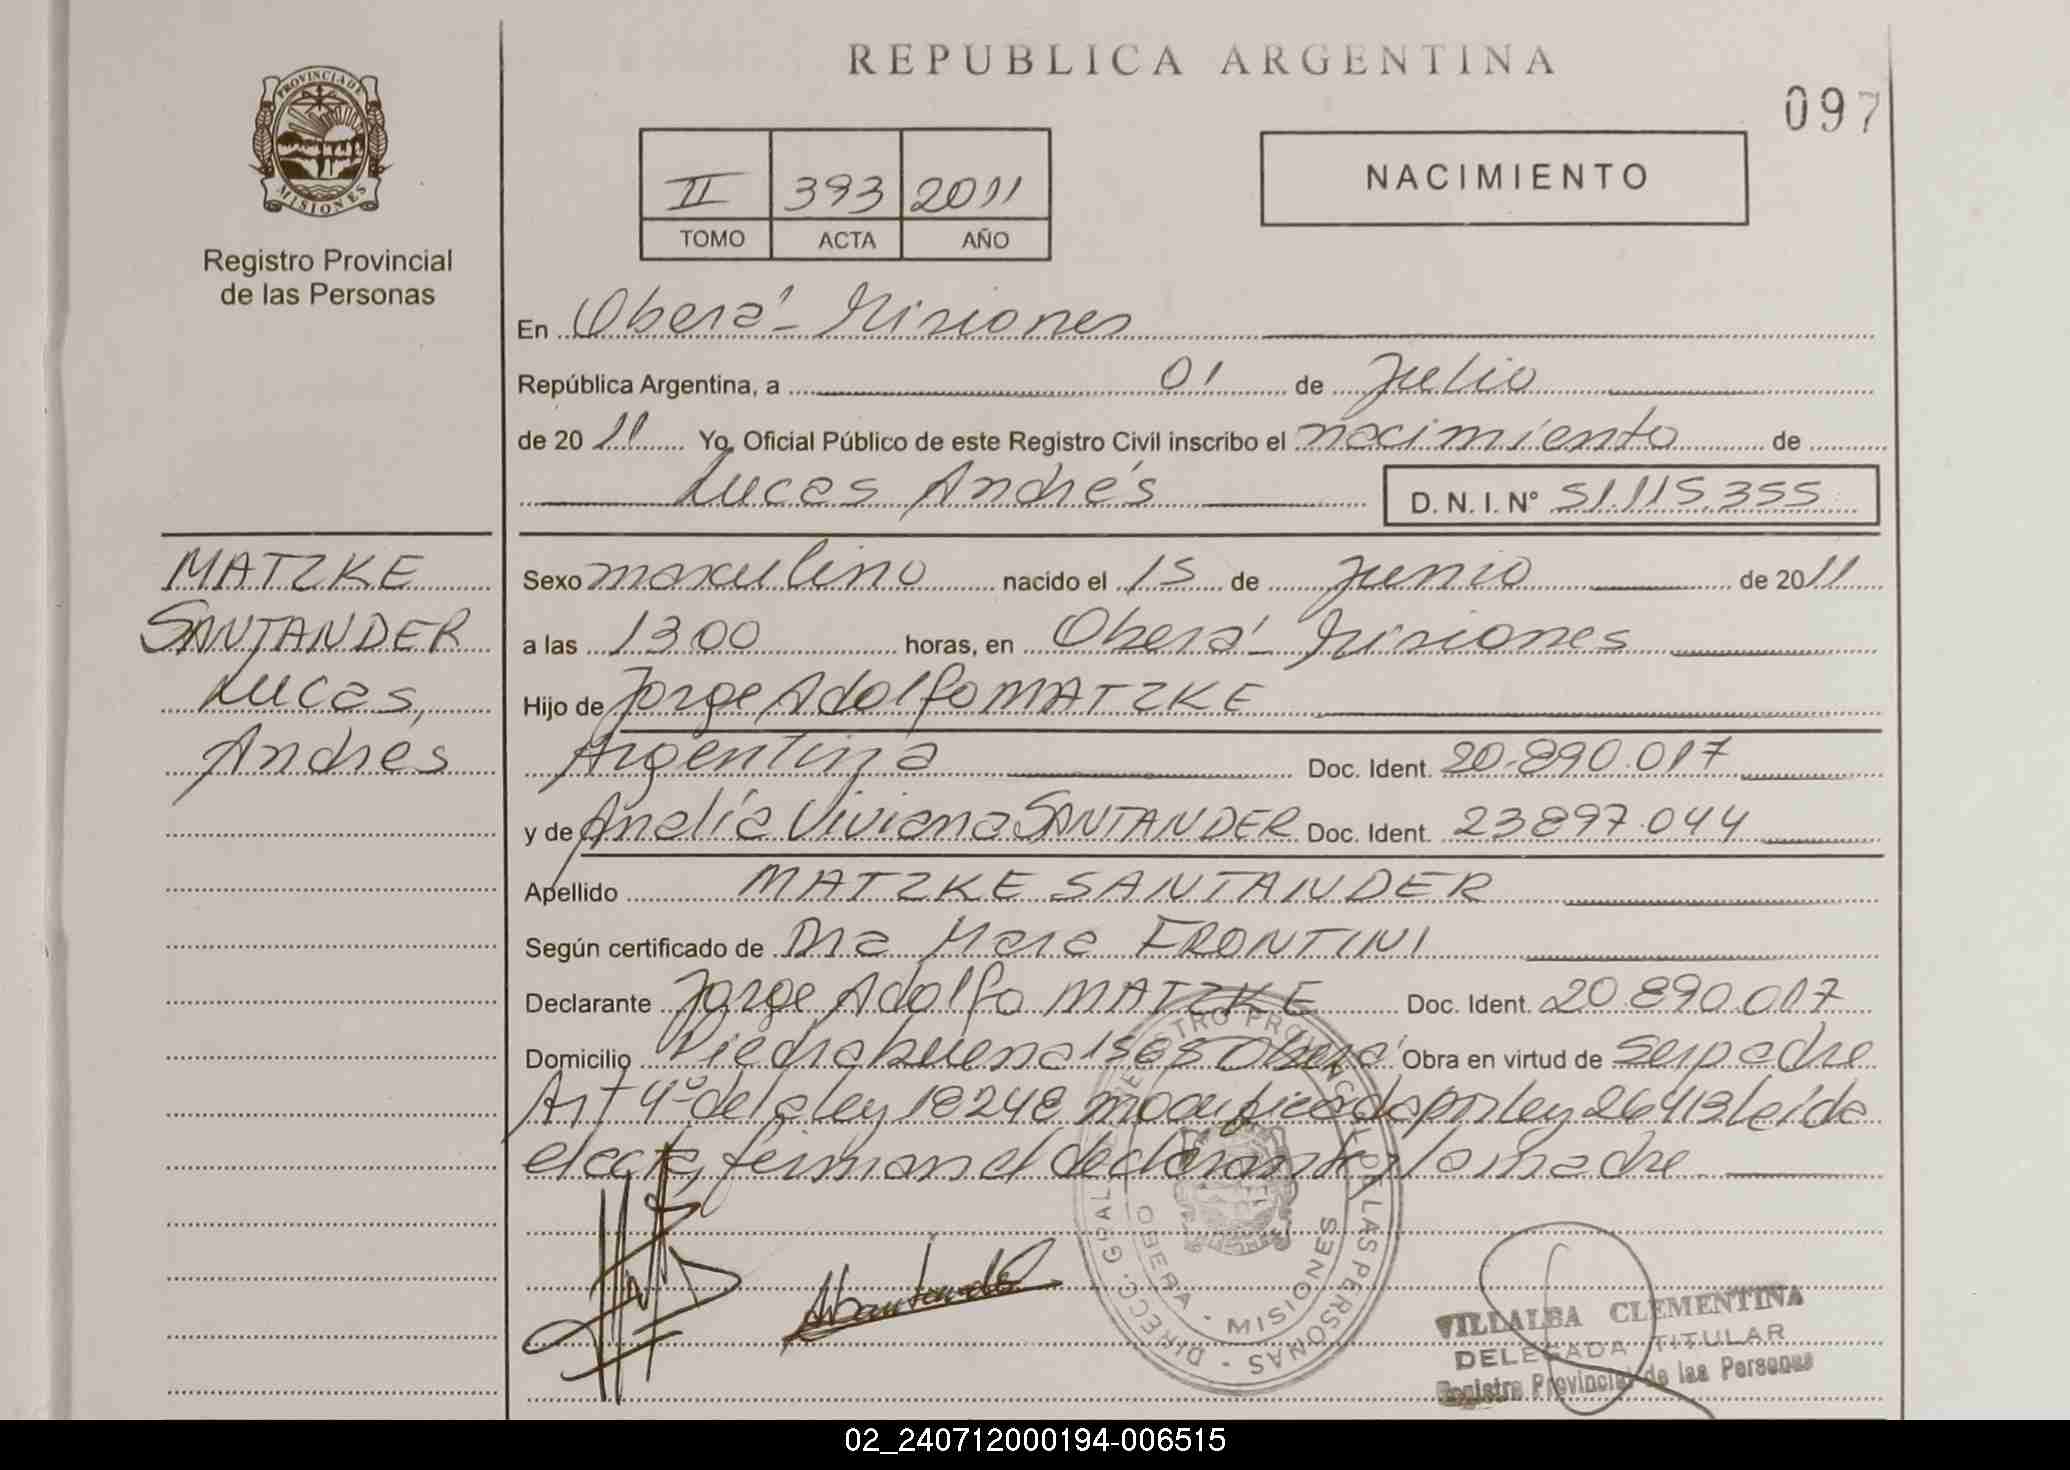 REPUBLICA ARGENTINA
097
PROVINCIA DE MISIONES
Registro Provincial
de las Personas
II 393 2011
TOMO ACTA AÑO
NACIMIENTO
En Oberá - Misiones
República Argentina, a 01 de Julio
de 2011 Yo, Oficial Público de este Registro Civil inscribo el nacimiento de
Lucas Andrés D. N. I. Nº 51.115.355
MATZKE
SANTANDER
Lucas,
Andrés
Sexo masculino nacido el 15 de Junio de 2011
a las 13 00 horas, en Oberá - Misiones
Hijo de Jorge Adolfo MATZKE
Argentina Doc. Ident. 20.890.017
y de Analía Viviana SANTANDER Doc. Ident. 23897.044
Apellido MATZKE SANTANDER
Según certificado de Dra Mara FRONTINI
Declarante Jorge Adolfo MATZKE Doc. Ident. 20.890.017
Domicilio Piedrabuena Oberá Obra en virtud de ser padre
Art 4º de la ley 18248 modificada por ley 26413 leída
el acta, firman el declarante y la madre
DIRECC. GRAL. DE REGISTRO PROVINCIAL DE LAS PERSONAS
OBERA - MISIONES
VILLALBA CLEMENTINA
DELEGADA TITULAR
Registro Provincial de las Personas
02_240712000194-006515